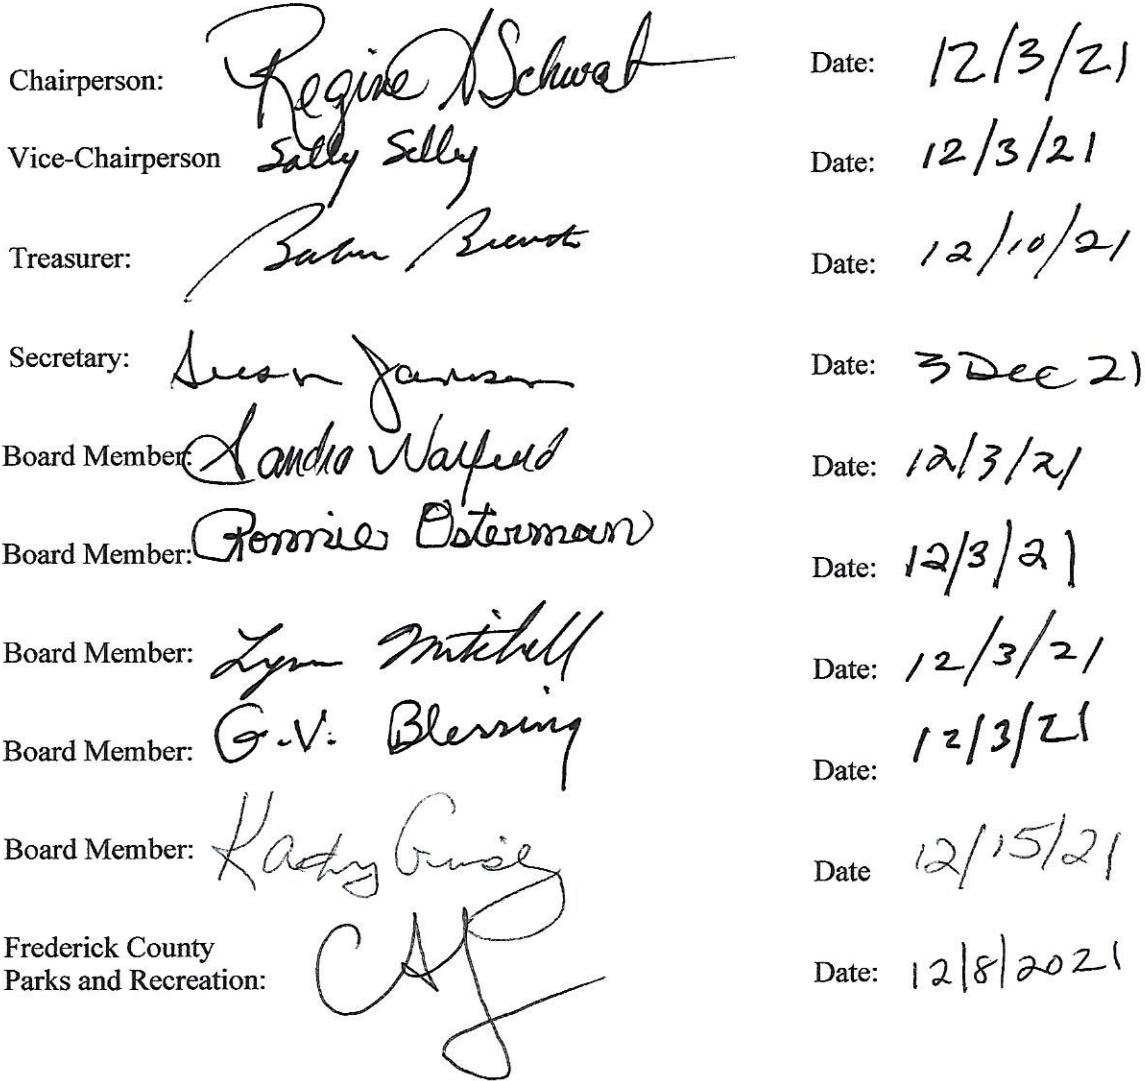 Chairperson: Regine A Schwab Date: 12/3/21
Vice-Chairperson Sally Selby Date: 12/3/21
Treasurer: Date: 12/10/21
Secretary: Susan Jamison Date: 3 Dec 21
Board Member: Sandra Warfield Date: 12/3/21
Board Member: Ronnie Osterman Date: 12/3/21
Board Member: Lynn Mitchell Date: 12/3/21
Board Member: G.V. Blessing Date: 12/3/21
Board Member: Kathy Date 12/15/21
Frederick County
Parks and Recreation: Date: 12/8/2021